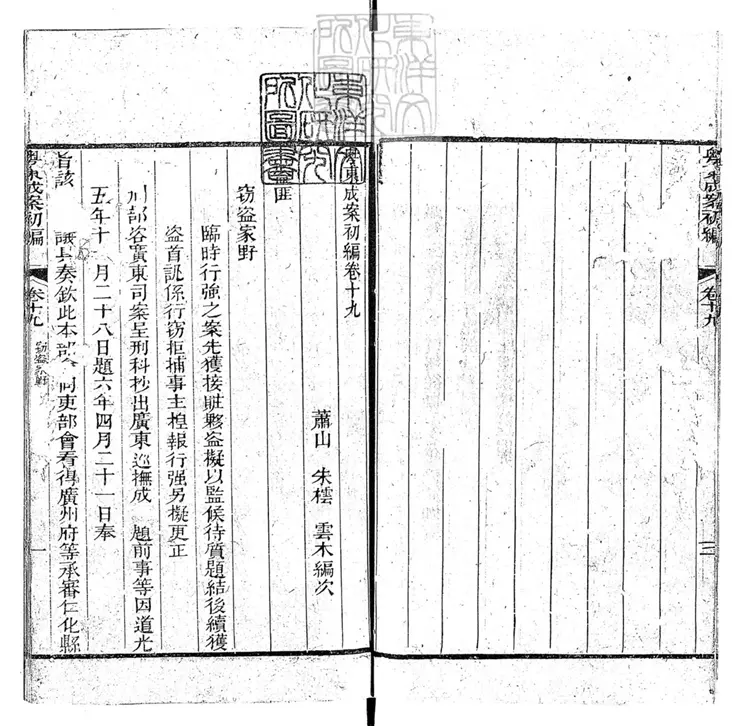 粵東成案初編
卷十九
二
粵東成案初編卷十九
蕭山 朱橒 雲木編次
匪
窃盜家野
臨時行強之案先獲接賍夥盜擬以監候待質題結後續獲
盜首訊係行窃拒捕事主捏報行强另擬更正
刑部咨廣東司案呈刑科抄出廣東巡撫成 題前事等因道光
五年十 月二十八日題六年四月二十一日奉
旨該 議具奏欽此本部 同吏部會看得廣州府等承審仁化縣
粵東成案初編
卷十九
窃盜家野
一
東洋文
化研究
所圖書
東洋文
化研究
所圖